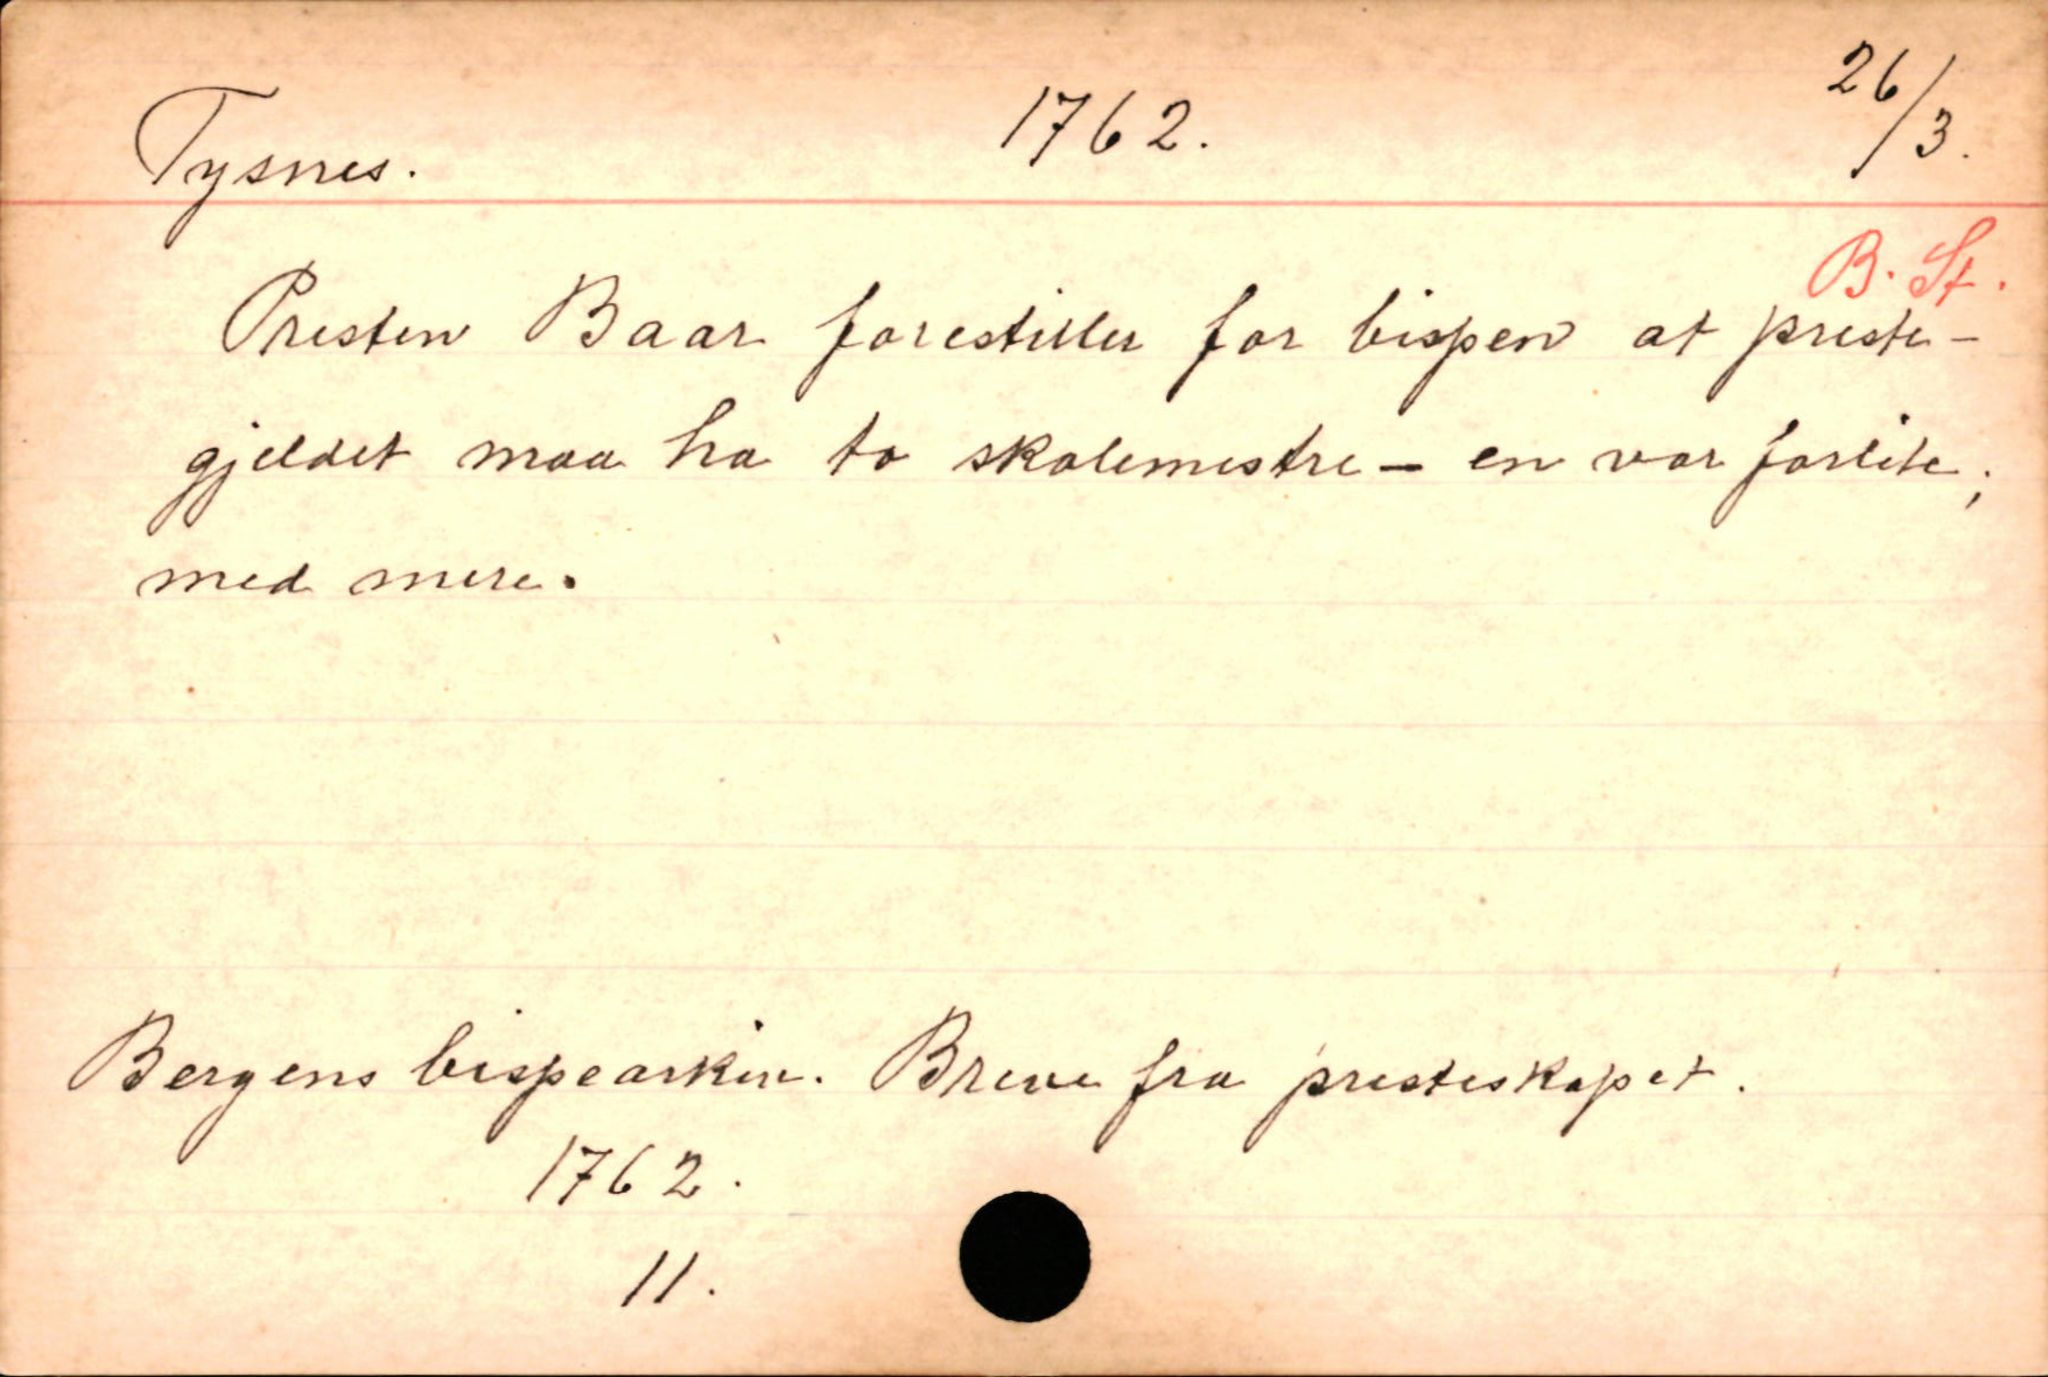 Tysnes. 1762. 26/3.
B. St.
Presten Baar forestiller for bispen at preste-
gjeldet maa ha to skolemestre - en var forlite;
med mere.
Bergens bispearkiv. Breve fra presteskapet.
1762.
11.